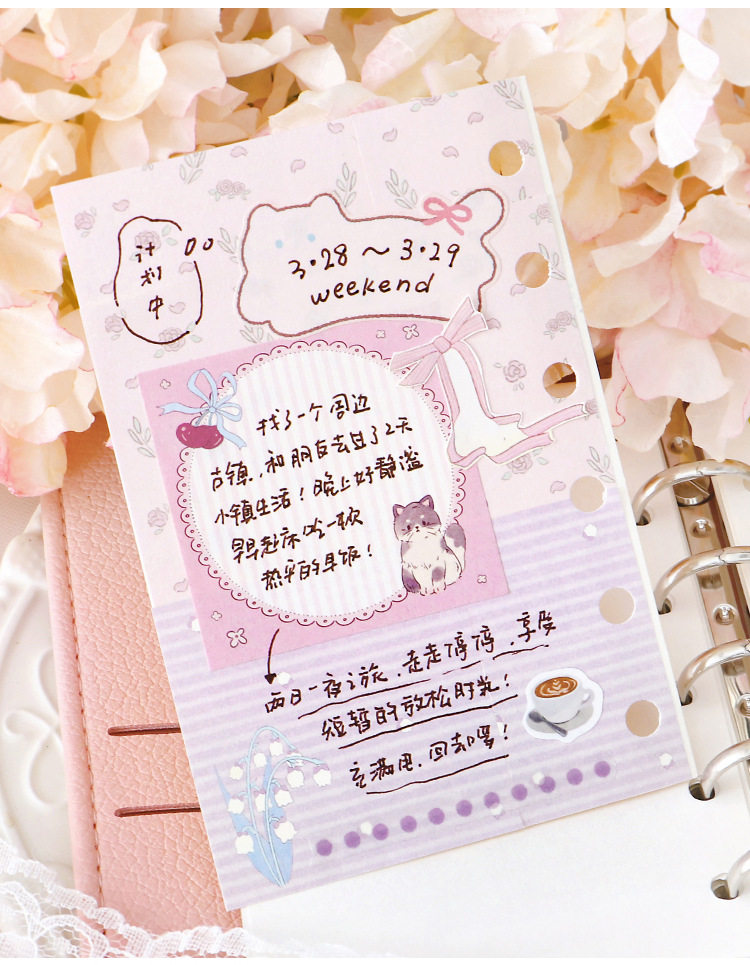 计
划
中
3.28~3.29
weekend
找了一个周边
古镇,和朋友去过了2天
小镇生活!晚上好静谧
早早起床吃一顿
热乎的早饭!
两日一夜之旅,走走停停,享受
短暂的放松时光!
充满电,回去啰!